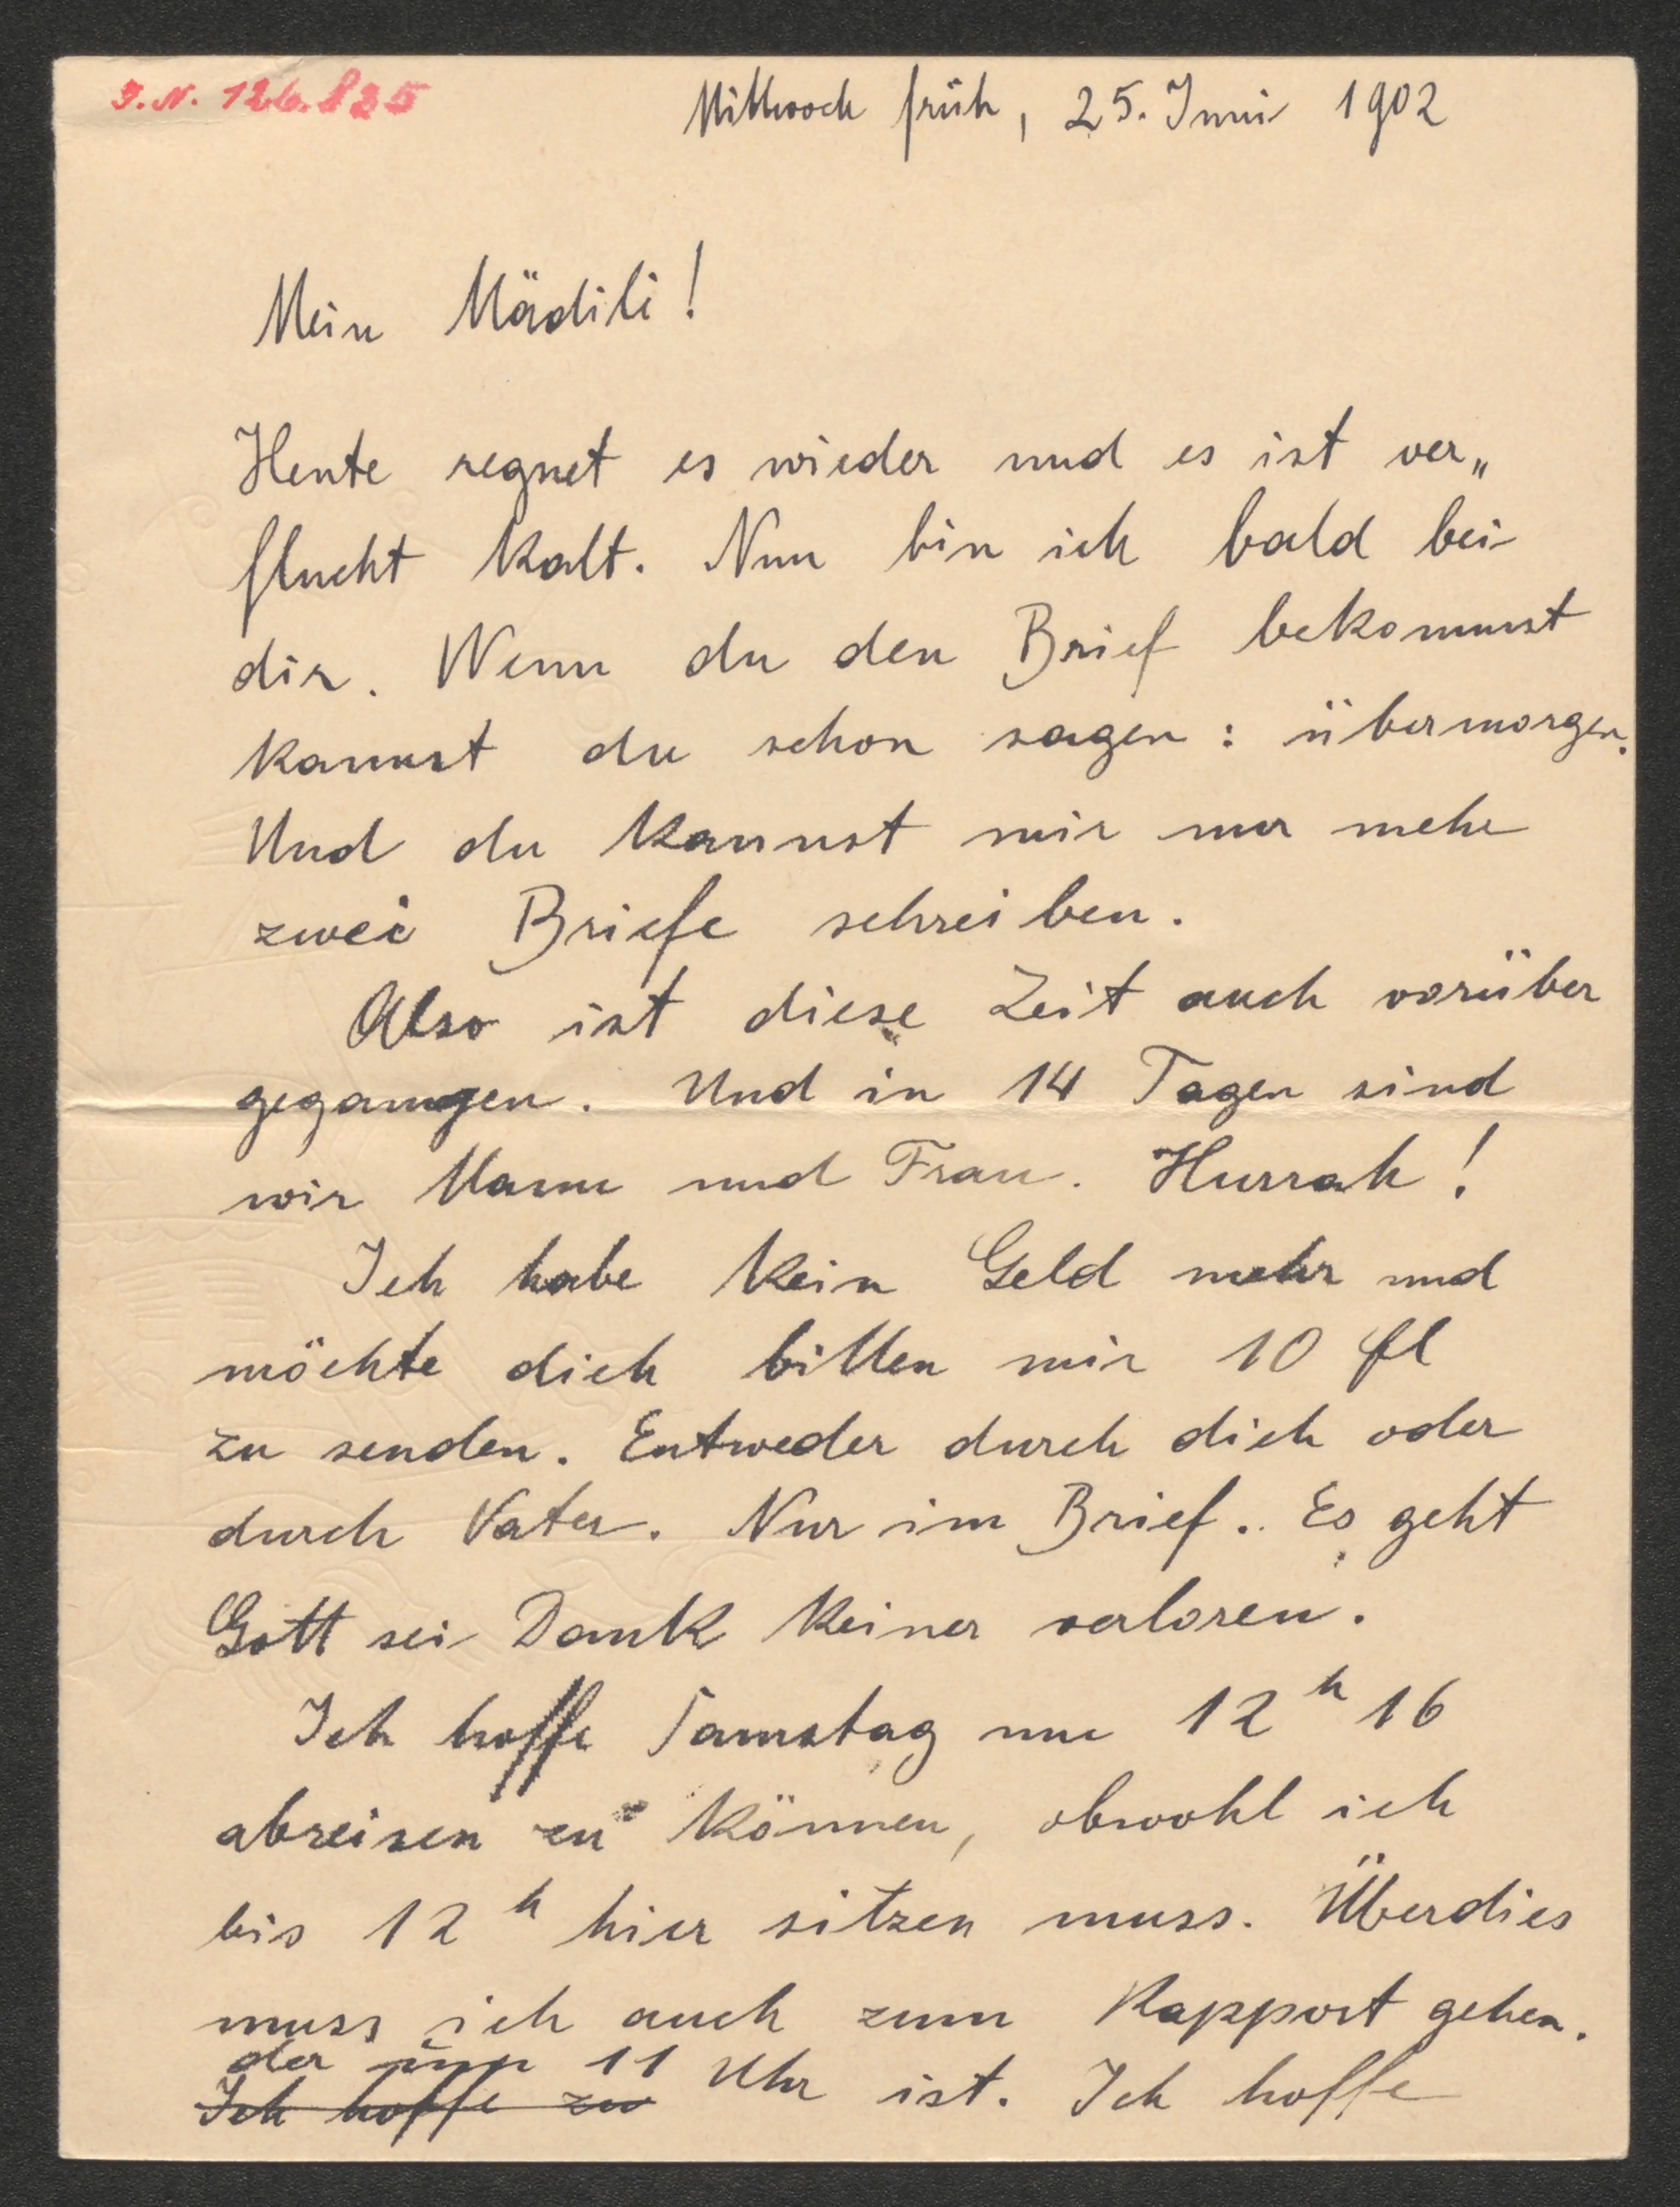 J.N. 126.835
Mittwoch früh, 25. Juni 1902
Mein Mädili!
Heute regnet es wieder und es ist ver„
flucht kalt. Nun bin ich bald bei
dir. Wenn du den Brief bekommst
kannst du schon sagen: übermorgen.
Und du kannst mir nur mehr
zwei Briefe schreiben.
Also ist diese Zeit auch vorüber
gegangen. Und in 14 Tagen sind
wir Mann und Frau. Hurrah!
Ich habe kein Geld mehr und
möchte dich bitten mir 10 fl
zu senden. Entweder durch dich oder
durch Vater. Nur im Brief. Es geht
Gott sei Dank keiner verloren.
Ich hoffe Samstag um 12h 16
abreisen zu können, obwohl ich
bis 12h hier sitzen muss. Überdies
muss ich auch zum Rapport gehen.
der um 11 Uhr ist. Ich hoffe
Ich hoffe zu